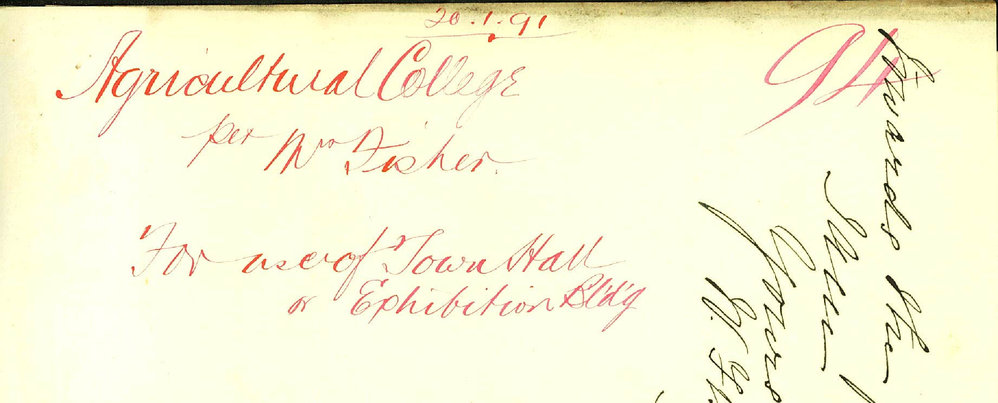 20.1.91
94
Agricultural College
per Mr Fisher.
For use of Town Hall
or Exhibition Bldg
the
Yours
W.